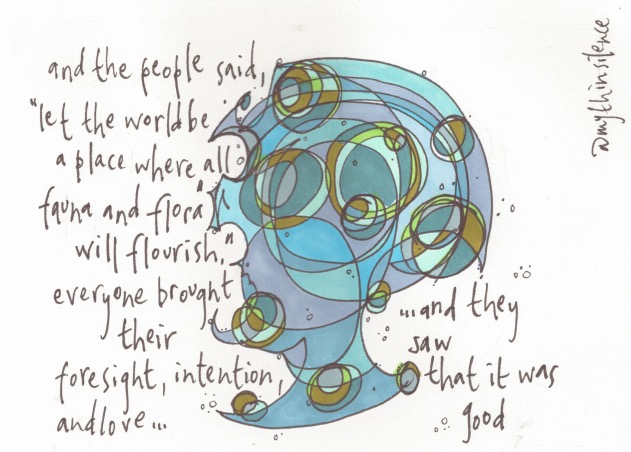 and the people said,
"let the world be
a place where all
fauna and flora
will flourish,"
everyone brought
their
foresight, intention,
and love...
...and they
saw
that it was
good
@mythinsilence